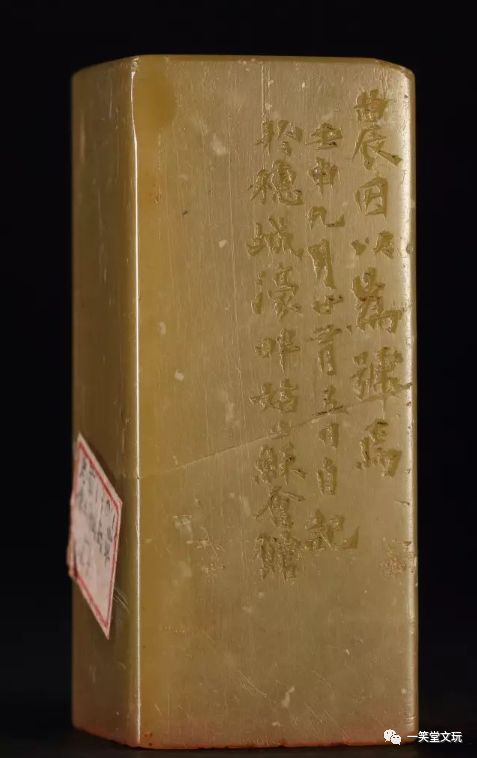 農因以為號焉
壬申九月廿又五日自記
於穗城濠畔姑蘇會館
一笑堂文玩